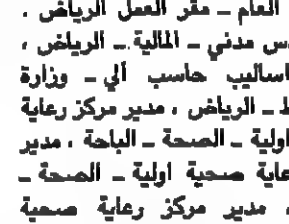 العام – مقر العمل الرياض .
س مدني – المالية – الرياض ،
اساليب حاسب آلي – وزارة
ط – الرياض ، مدير مركز رعاية
اولية – الصحة – الباحة ، مدير
عاية صحية اولية – الصحة –
، مدير مركز رعاية صحية